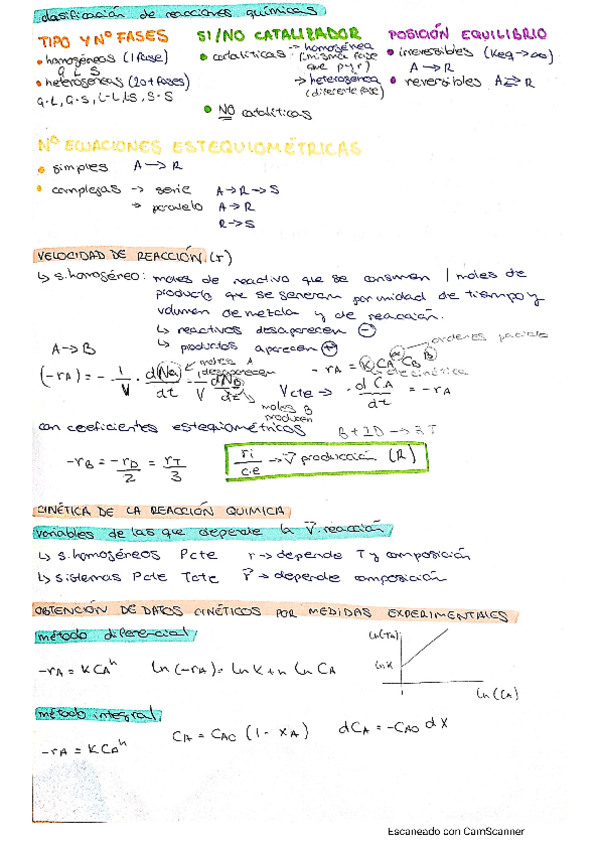 clasificación de reacciones químicas
TIPO Y Nº FASES
• homogéneas (1 fase)
G L S
• heterogéneas (2 o + fases)
G-L, G-S, L-L, LS, S-S
SI/NO CATALIZADOR
• catalíticas → homogénea
(misma fase
que p y r)
→ heterogénea
(diferente fase)
• NO catalíticas
POSICIÓN EQUILIBRIO
• irreversibles (Keq→∞)
A → R
• reversibles A ⇄ R
Nº ECUACIONES ESTEQUIOMÉTRICAS
• simples A → R
• complejas → serie A → R → S
→ paralelo A → R
R → S
VELOCIDAD DE REACCIÓN (r)
↳ s. homogéneo: moles de reactivo que se consumen / moles de
producto que se generan por unidad de tiempo y
volumen de mezcla y de reacción.
↳ reactivos desaparecen ⊖
↳ productos aparecen ⊕
ordenes parciales
A → B
moles A
desaparecen
(-rA) = - 1/V · dNA/dt = 1/V dNB/dt
-rA = K CA^α CB^β
cte cinética
moles B
producen
V cte → - dCA/dt = -rA
con coeficientes estequiométricos B + 2D → 3T
-rB = -rD/2 = rT/3
ri/c.e → V producción (R)
CINÉTICA DE LA REACCIÓN QUIMICA
variables de las que depende la V. reacción
↳ s. homogéneos Pcte r → depende T y composición
↳ sistemas Pcte Tcte r → depende composición
OBTENCIÓN DE DATOS CINÉTICOS POR MEDIDAS EXPERIMENTALES
método diferencial
-rA = KCA^n ln(-rA) = ln K + n ln CA
ln K
ln (CA)
método integral
-rA = KCA^n
CA = CA0 (1 - XA) dCA = -CA0 dX
Escaneado con CamScanner